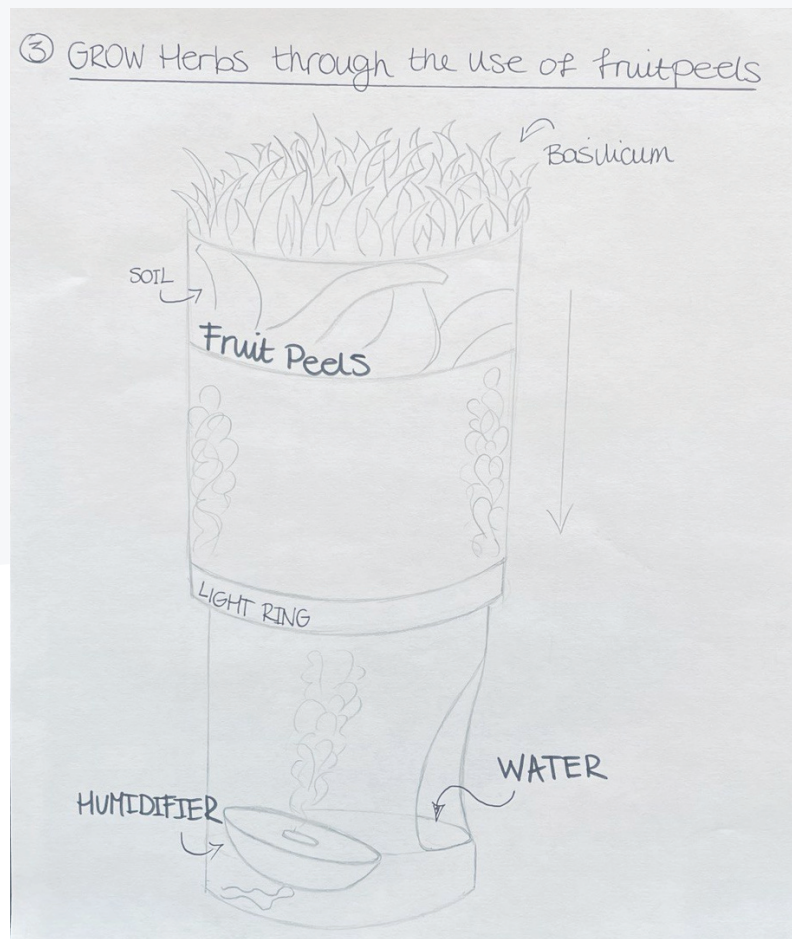 ③ GROW Herbs through the use of fruitpeels
Basilicum
SOIL
Fruit Peels
LIGHT RING
WATER
HUMIDIFIER